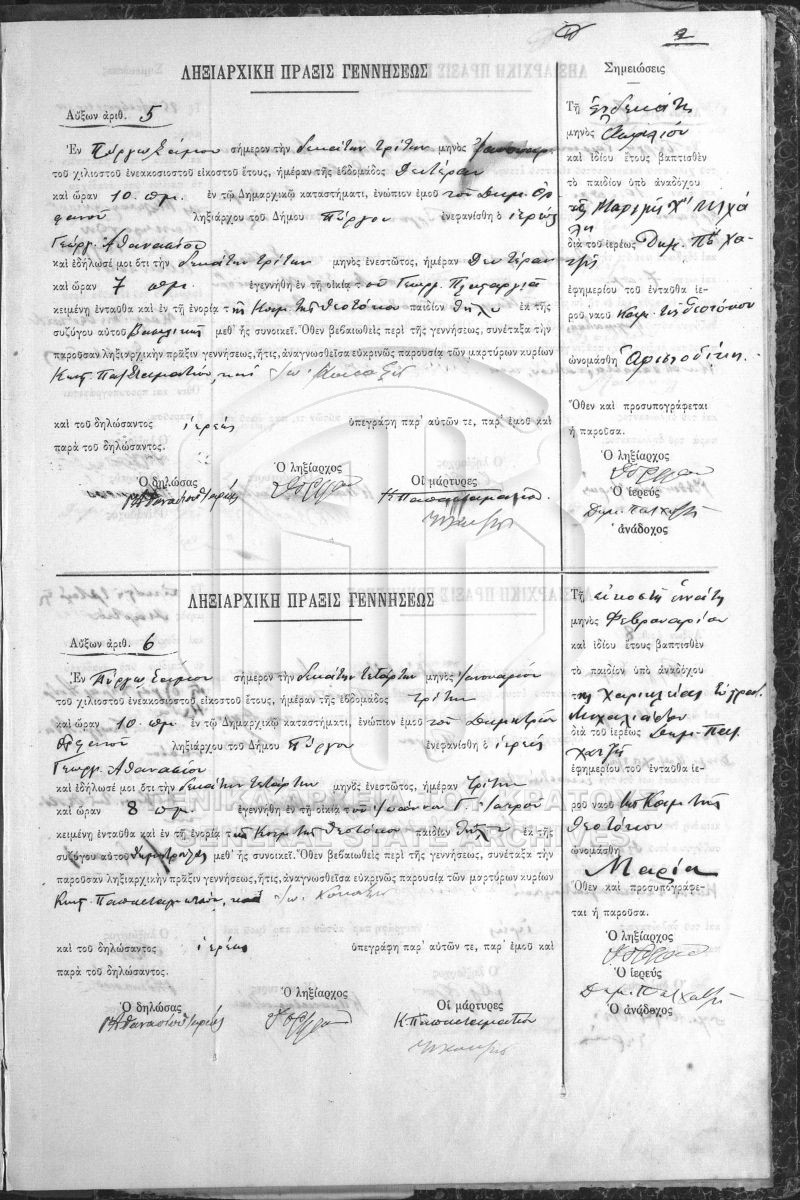 2
ΛΗΞΙΑΡΧΙΚΗ ΠΡΑΞΙΣ ΓΕΝΝΗΣΕΩΣ
Αὔξων ἀριθ. 5
Ἐν Πύργῳ Σάμου σήμερον τὴν δεκάτην τρίτην μηνὸς Ἰανουαρ.
τοῦ χιλιοστοῦ ἐνεακοσιοστοῦ εἰκοστοῦ ἔτους, ἡμέραν τῆς ἑβδομάδος Δευτέραν
καὶ ὥραν 10 π.μ. ἐν τῷ Δημαρχικῷ καταστήματι, ἐνώπιον ἐμοῦ τοῦ Δημ. Ὀρ-
φανοῦ ληξιάρχου τοῦ Δήμου Πύργου ἐνεφανίσθη ὁ ἱερεὺς
Γεώργ. Ἀθανασίου
καὶ ἐδήλωσέ μοι ὅτι τὴν δεκάτην τρίτην μηνὸς ἐνεστῶτος, ἡμέραν Δευτέραν
καὶ ὥραν 7 π.μ. ἐγεννήθη ἐν τῇ οἰκίᾳ τοῦ Γεωργ.
κειμένῃ ἐνταῦθα καὶ ἐν τῇ ἐνορίᾳ τῆς Κοιμ. τῆς Θεοτόκου παιδίον θῆλυ ἐκ τῆς
συζύγου αὐτοῦ Βασιλικῆς μεθ᾽ ἧς συνοικεῖ. Ὅθεν βεβαιωθεὶς περὶ τῆς γεννήσεως, συνέταξα τὴν
παροῦσαν ληξιαρχικὴν πρᾶξιν γεννήσεως, ἥτις, ἀναγνωσθεῖσα εὐκρινῶς παρουσίᾳ τῶν μαρτύρων κυρίων
Κωτ. Παπασταματίου, καὶ Ἰω.
καὶ τοῦ δηλώσαντος ἱερεὺς ὑπεγράφη παρ᾽ αὐτῶν τε, παρ᾽ ἐμοῦ καὶ
παρὰ τοῦ δηλώσαντος.
Ὁ δηλώσας Ὁ ληξίαρχος Οἱ μάρτυρες
Ἀθανασίου Ἱερεύς Κ. Παπασταματίου
Σημειώσεις
Τῇ ἑνδεκάτῃ
μηνὸς Ἀπριλίου
καὶ ἰδίου ἔτους βαπτισθὲν
τὸ παιδίον ὑπὸ ἀναδόχου
τῆς
διὰ τοῦ ἱερέως Δημ. Π. Χα-
τζῆ
ἐφημερίου τοῦ ἐνταῦθα ἱε-
ροῦ ναοῦ Κοιμ. τῆς Θεοτόκου
ὠνομάσθη Ἀριστοδίκη.
Ὅθεν καὶ προσυπογράφεται
ἡ παροῦσα.
Ὁ ληξίαρχος
Ὁ ἱερεύς
Δημ. Παπχατζῆ
ἀνάδοχος
ΛΗΞΙΑΡΧΙΚΗ ΠΡΑΞΙΣ ΓΕΝΝΗΣΕΩΣ
Αὔξων ἀριθ. 6
Ἐν Πύργῳ Σάμου σήμερον τὴν δεκάτην τετάρτην μηνὸς Ἰανουαρίου
τοῦ χιλιοστοῦ ἐνεακοσιοστοῦ εἰκοστοῦ ἔτους, ἡμέραν τῆς ἑβδομάδος Τρίτην
καὶ ὥραν 10 π.μ. ἐν τῷ Δημαρχικῷ καταστήματι, ἐνώπιον ἐμοῦ τοῦ Δημητρίου
Ὀρφανοῦ ληξιάρχου τοῦ Δήμου Πύργου ἐνεφανίσθη ὁ ἱερεὺς
Γεωργ. Ἀθανασίου
καὶ ἐδήλωσέ μοι ὅτι τὴν δεκάτην τετάρτην μηνὸς ἐνεστῶτος, ἡμέραν Τρίτην
καὶ ὥραν 8 π.μ. ἐγεννήθη ἐν τῇ οἰκίᾳ τοῦ Ἰωάννου Γ. Ἰατροῦ
κειμένῃ ἐνταῦθα καὶ ἐν τῇ ἐνορίᾳ τῆς Κοιμ. τῆς Θεοτόκου παιδίον θῆλυ ἐκ τῆς
συζύγου αὐτοῦ μεθ᾽ ἧς συνοικεῖ. Ὅθεν βεβαιωθεὶς περὶ τῆς γεννήσεως, συνέταξα τὴν
παροῦσαν ληξιαρχικὴν πρᾶξιν γεννήσεως, ἥτις, ἀναγνωσθεῖσα εὐκρινῶς παρουσίᾳ τῶν μαρτύρων κυρίων
Κωτ. Παπασταματίου, καὶ Ἰω.
καὶ τοῦ δηλώσαντος ἱερεὺς ὑπεγράφη παρ᾽ αὐτῶν τε, παρ᾽ ἐμοῦ καὶ
παρὰ τοῦ δηλώσαντος.
Ὁ δηλώσας Ὁ ληξίαρχος Οἱ μάρτυρες
Ἀθανασίου Ἱερεύς Κ. Παπασταματίου
Τῇ εἰκοστῇ ἐννάτῃ
μηνὸς Φεβρουαρίου
καὶ ἰδίου ἔτους βαπτισθὲν
τὸ παιδίον ὑπὸ ἀναδόχου
τῆς Χαρικλείας
Μιχαλιάδου
διὰ τοῦ ἱερέως Δημ. Παπ.
Χατζῆ
ἐφημερίου τοῦ ἐνταῦθα ἱε-
ροῦ ναοῦ τῆς Κοιμ. τῆς
Θεοτόκου
ὠνομάσθη
Μαρία
Ὅθεν καὶ προσυπογράφε-
ται ἡ παροῦσα.
Ὁ ληξίαρχος
Ὁ ἱερεύς
Δημ. Παπχατζῆ
Ὁ ἀνάδοχος
GENERAL STATE ARCHIVES